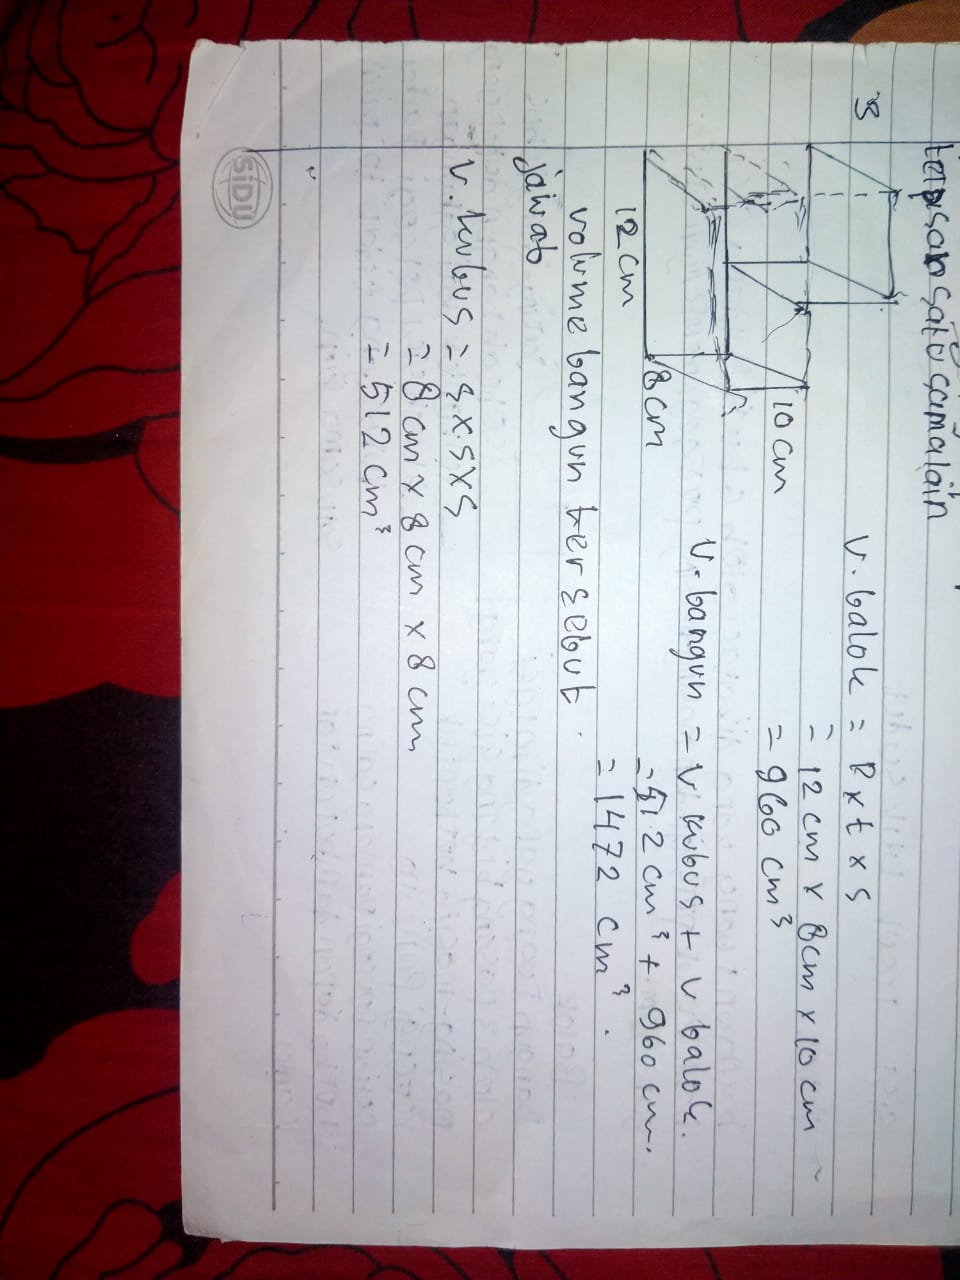 terpisah satu sama lain
3
10 cm
8 cm
12 cm
volume bangun tersebut
jawab
V. kubus = s x s x s
= 8 cm x 8 cm x 8 cm
= 512 cm³
V. balok = P x t x s
= 12 cm x 8 cm x 10 cm
= 960 cm³
V. bangun = V kubus + V balok.
= 512 cm³ + 960 cm.
= 1472 cm³.
SiDU